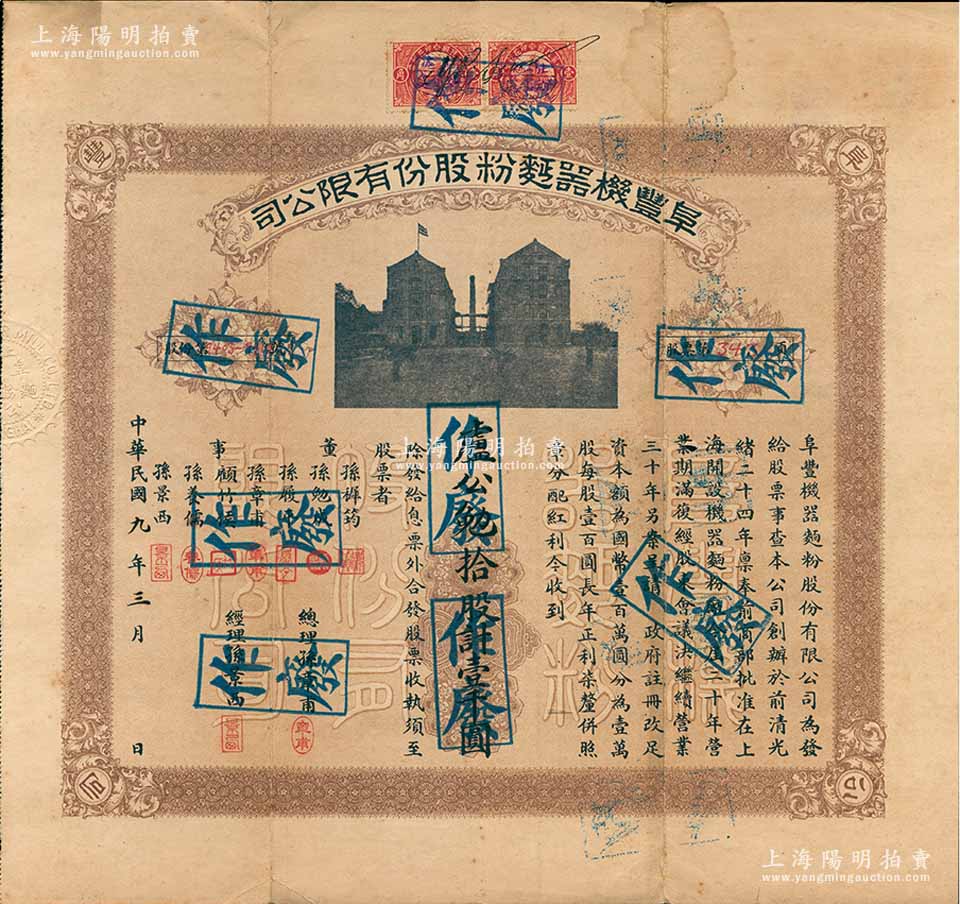 上海陽明拍賣
www.yangmingauction.com
作廢
阜豐公司
阜豐機器麪粉股份有限公司
作廢
作廢
阜豐機器麵粉股份有限公司為發
給股票事查本公司創辦於前清光
緒二十四年禀奉前商部批准在上
海開設機器麵粉二十年營
業期滿復經股會議決繼續營業
三十年另案政府註冊改足
資本額為國幣壹百萬圓分為壹萬
股每股壹百圓長年正利柒釐併照
章分配紅利今收到
拾股計壹圓
除發給息票外合發股票收執須至
股票者
董事
孫景西
孫養儒
顧竹
孫章甫
孫履
孫勉
孫裤筠
總理孫甫
經理孫景西
中華民國九年三月 日
作廢
作廢
作廢
作廢
作廢
上海陽明拍賣
www.yangmingauction.com
上海陽明拍賣
www.yangmingauction.com